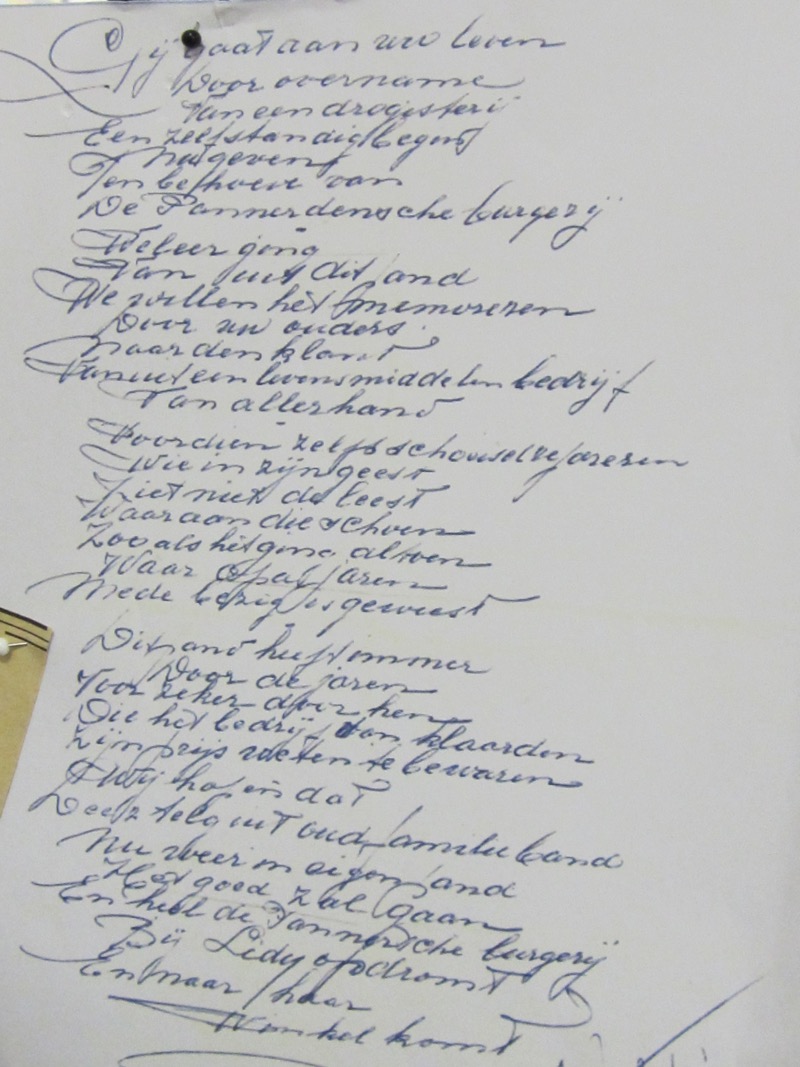 Gij gaat aan uw leven
Door overname
Van een drogisterij
Een zelfstandig begrip
Natgeven
Ten behoeve van
De Pannerdensche burgerij
Weleer ging
Van uit dit pand
We willen het memoreren
Door uw ouders
Naar den klant
Vanuit een levensmiddelen bedrijf
Van allerhand
Voordien zelfs
Wie in zijn geest
Ziet niet de leest
Waaraan die schoen
Zooals het ging altoen
Waar opa jaren
Mede bezig is geweest
Dit pand heeft immer
Door de jaren
Voor zeker door hen
Die het bedrijf van klaarden
Zijn prijs weten te bewaren
Wij hopen dat
Deez telg uit oud familie band
Nu weer in eigen pand
Het goed zal gaan
En heel de Pannersche burgerij
Bij Lidy opdromt
En naar haar
Winkel komt